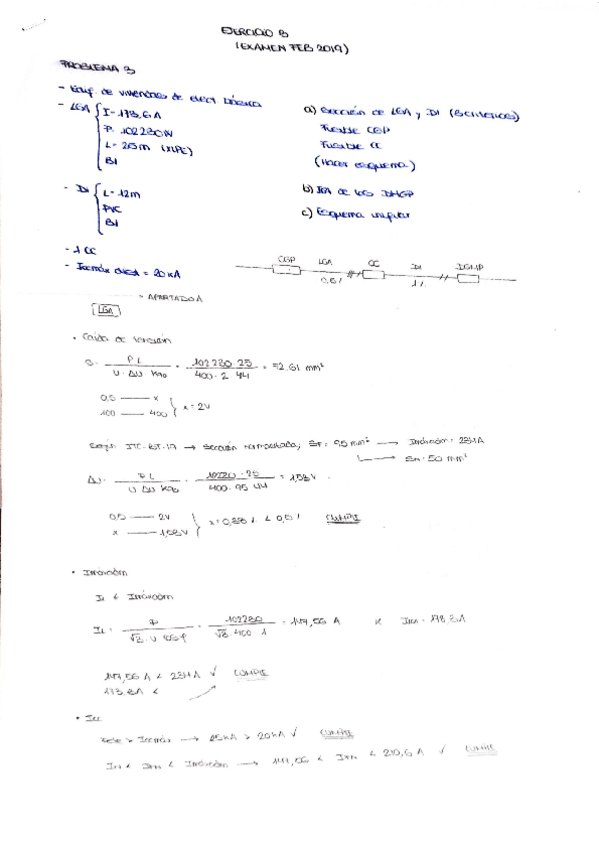 EJERCICIO B
(EXAMEN FEB 2019)
PROBLEMA 3
- Edif. de viviendas de elect. básica
- LGA { I = 173,6 A
P: 102280W
L = 25 m (XLPE)
B1
a) Sección de LGA y DI (3 criterios)
Fusible CGP
Fusible CC
(Hacer esquema)
- DI { L = 12m
PVC
B1
b) IPA de los DGMP
c) Esquema unifilar
- 1 CC
- Iccmáx = 20 kA
CGP LGA CC DI DGMP
0,5% 1%
- APARTADO A
LGA
• Caída de tensión
S = P L / U · ΔU · K90 = 102280 · 25 / 400 · 2 · 44 = 72,61 mm²
0,5 —— x
100 —— 400 } x = 2V
ITC-BT-14 → Sección normalizada, SF = 95 mm² → Imáxadm = 234A
Sn = 50 mm²
ΔU = P L / U ΔU K90 = 102280 · 25 / 400 · 95 · 44 = 1,53 V
0,5 —— 2V
x —— 1,53V } x = 0,383 % < 0,5 % CUMPLE
• Imáxadm
IL < Imáxadm
IL = P / √3 · U cosφ = 102280 / √3 · 400 · 1 = 147,56 A
147,56 A < 234A √ CUMPLE
173,3A <
Pdc > Iccmáx → 25kA > 20kA √ CUMPLE
< 210,6 A √ CUMPLE